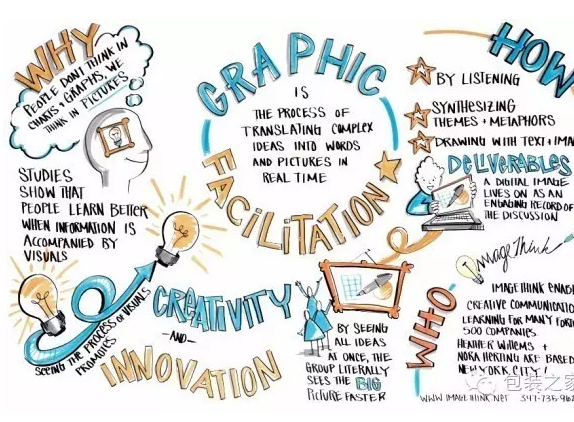 WHY
PEOPLE DON'T THINK IN
CHARTS + GRAPHS, WE
THINK IN PICTURES
STUDIES
SHOW THAT
PEOPLE LEARN BETTER
WHEN INFORMATION IS
ACCOMPANIED BY
VISUALS
GRAPHIC
IS
THE PROCESS OF
TRANSLATING COMPLEX
IDEAS INTO WORDS
AND PICTURES IN
REAL TIME
FACILITATION
HOW
BY LISTENING
SYNTHESIZING
THEMES + METAPHORS
DRAWING WITH TEXT + IMA
DELIVERABLES
A DIGITAL IMAGE
LIVES ON AS AN
ENGAGING RECORD OF
THE DISCUSSION
SEEING THE PROCESS OF VISUALS
PROMOTES
CREATIVITY
-AND-
INNOVATION
BY SEEING
ALL IDEAS
AT ONCE, THE
GROUP LITERALLY
SEES THE BIG
PICTURE FASTER
ImageThink
WHO
IMAGETHINK ENAB
CREATIVE COMMUNICATIO
LEARNING FOR MANY FORT
500 COMPANIES.
HEATHER WILLEMS +
NORA HERTING ARE BASED
NEW YORK CITY!
包装之家
WWW.IMAGETHINK.NET